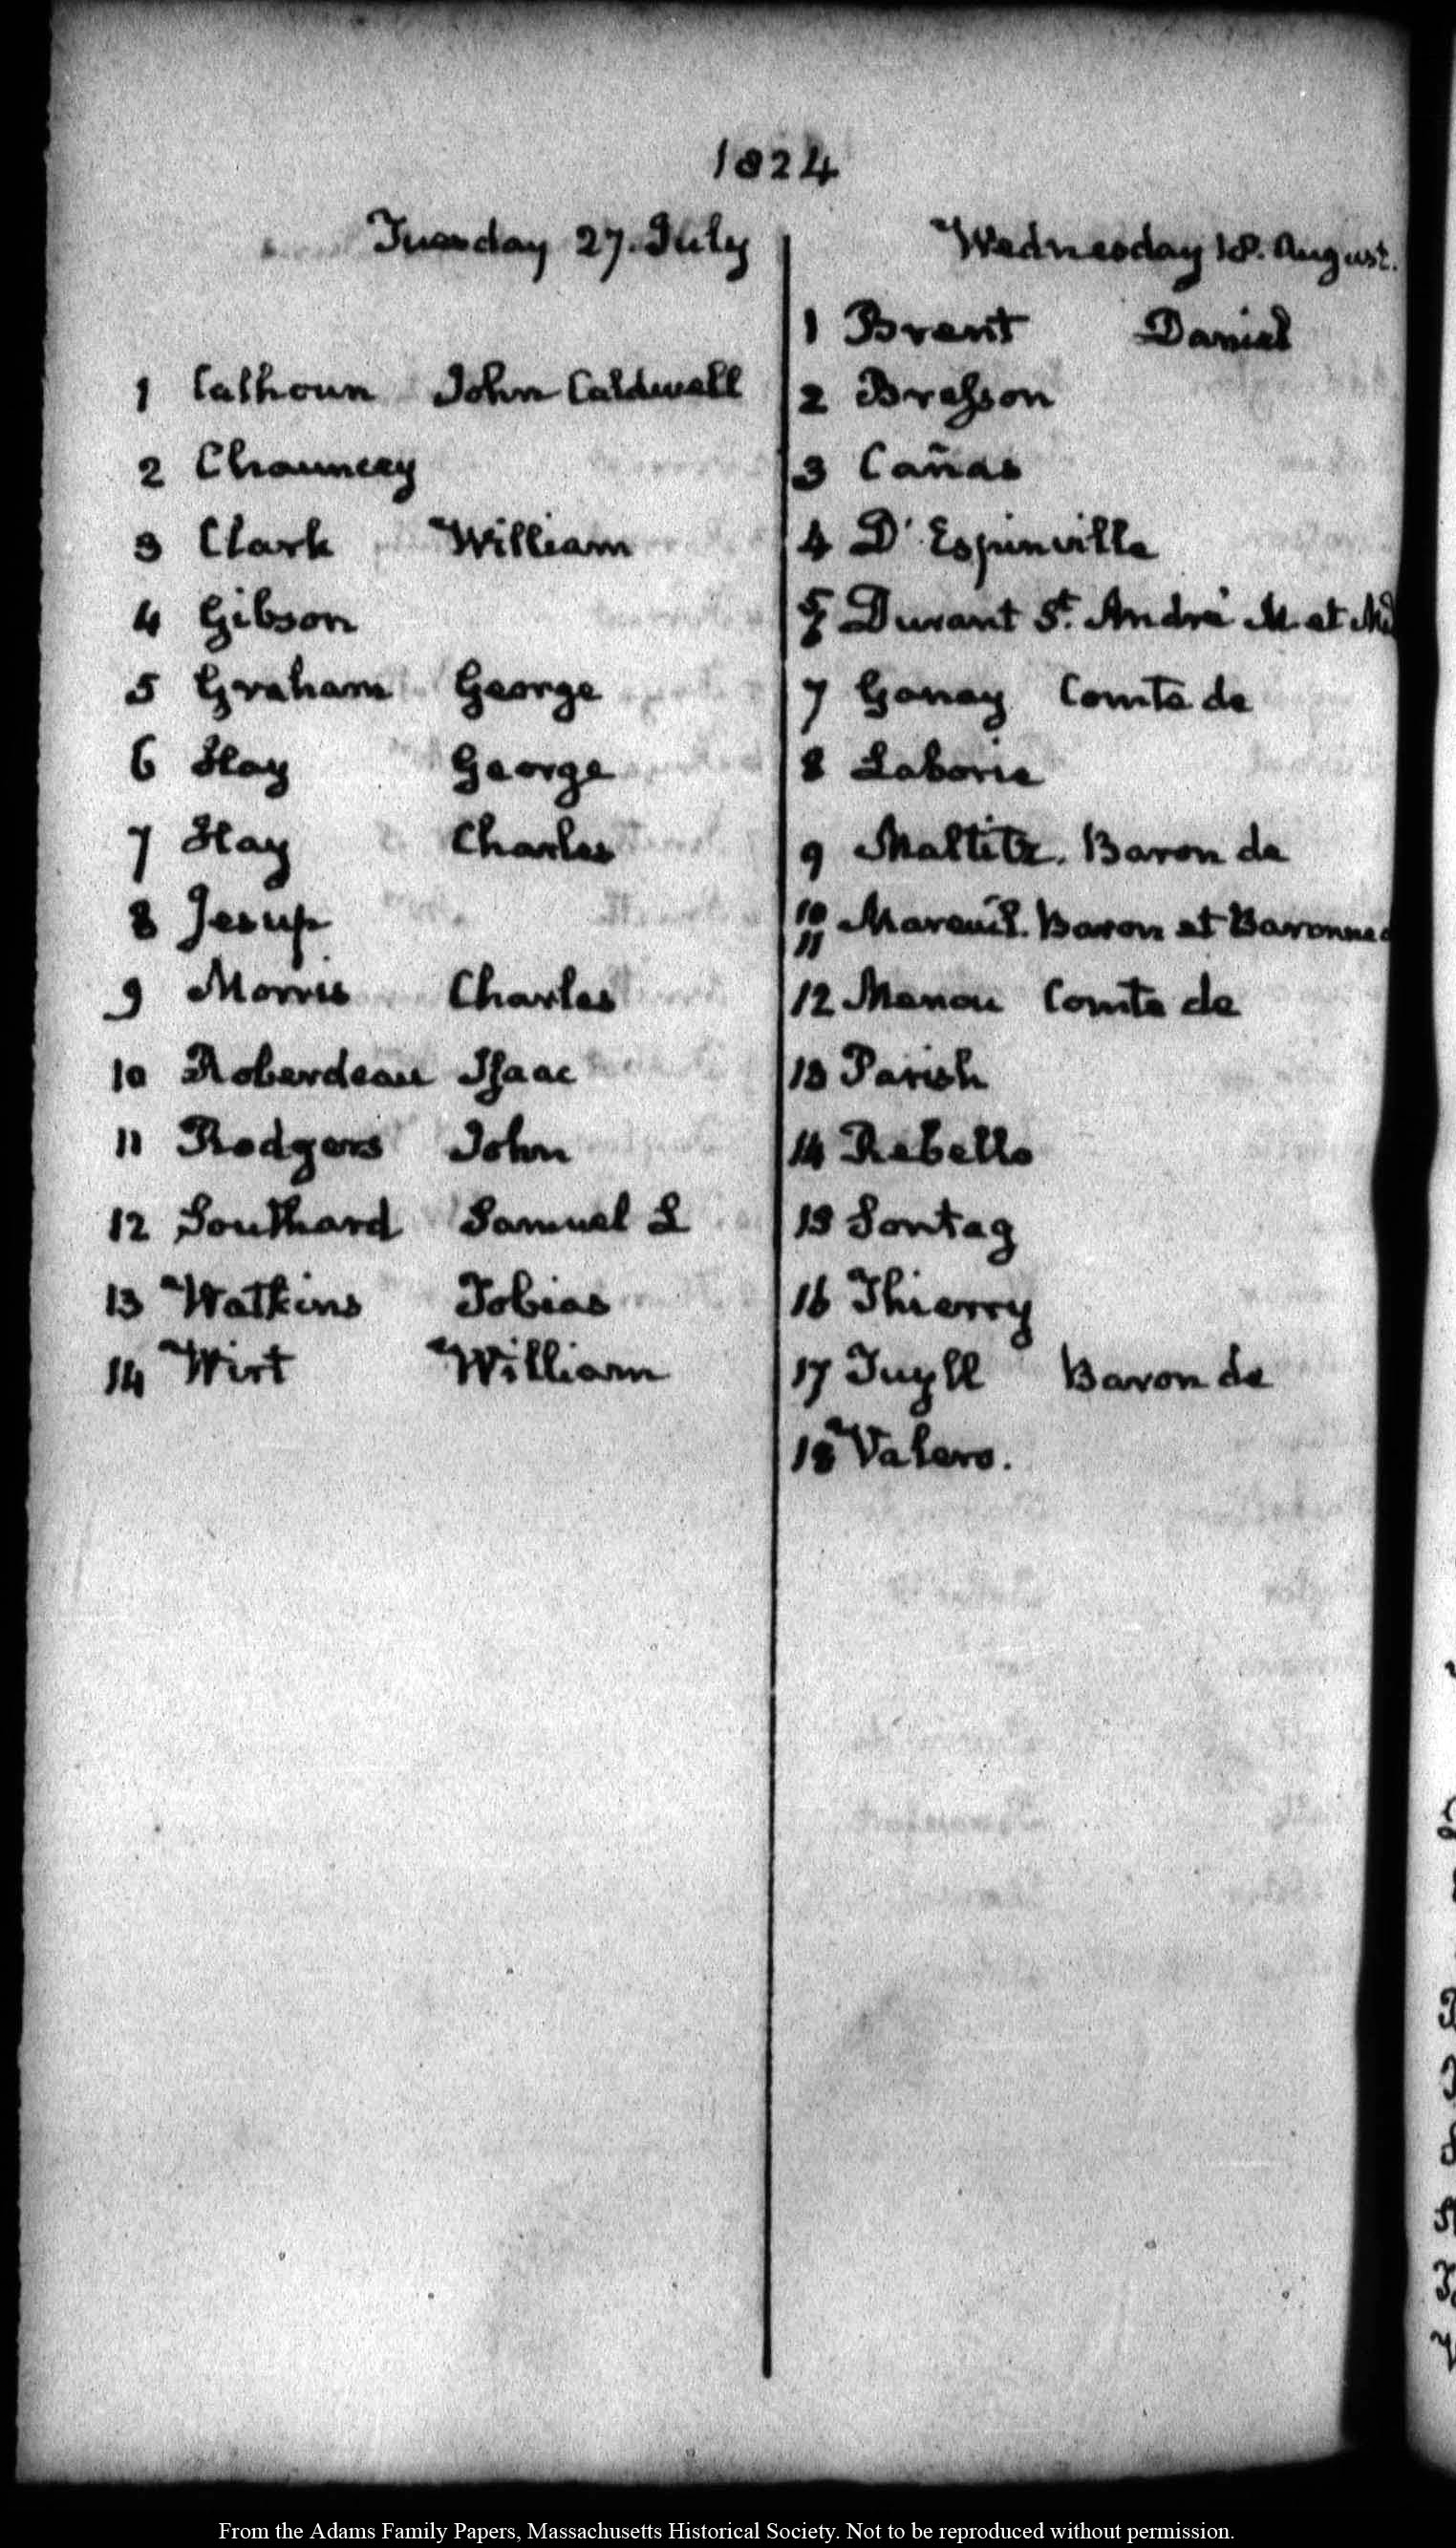 1824
Tuesday 27. July
1 Calhoun John Caldwell
2 Chauncey
3 Clark William
4 Gibson
5 Graham George
6 Hay George
7 Hay Charles
8 Jesup
9 Morris Charles
10 Roberdeau Isaac
11 Rodgers John
12 Southard Samuel L
13 Watkins Tobias
14 Wirt William
Wednesday 18. August.
1 Brent Daniel
2 Bresson
3 Cañas
4 D'Espinville
5
6 Durant St. André M. et Md
7 Ganay Comte de
8 Laborie
9 Maltitz. Baron de
10
11 Mareuil. Baron et Baronne d
12 Menou Comte de
13 Parish
14 Rebello
15 Sontag
16 Thierry
17 Tuyll Baron de
18 Valero.
From the Adams Family Papers, Massachusetts Historical Society. Not to be reproduced without permission.